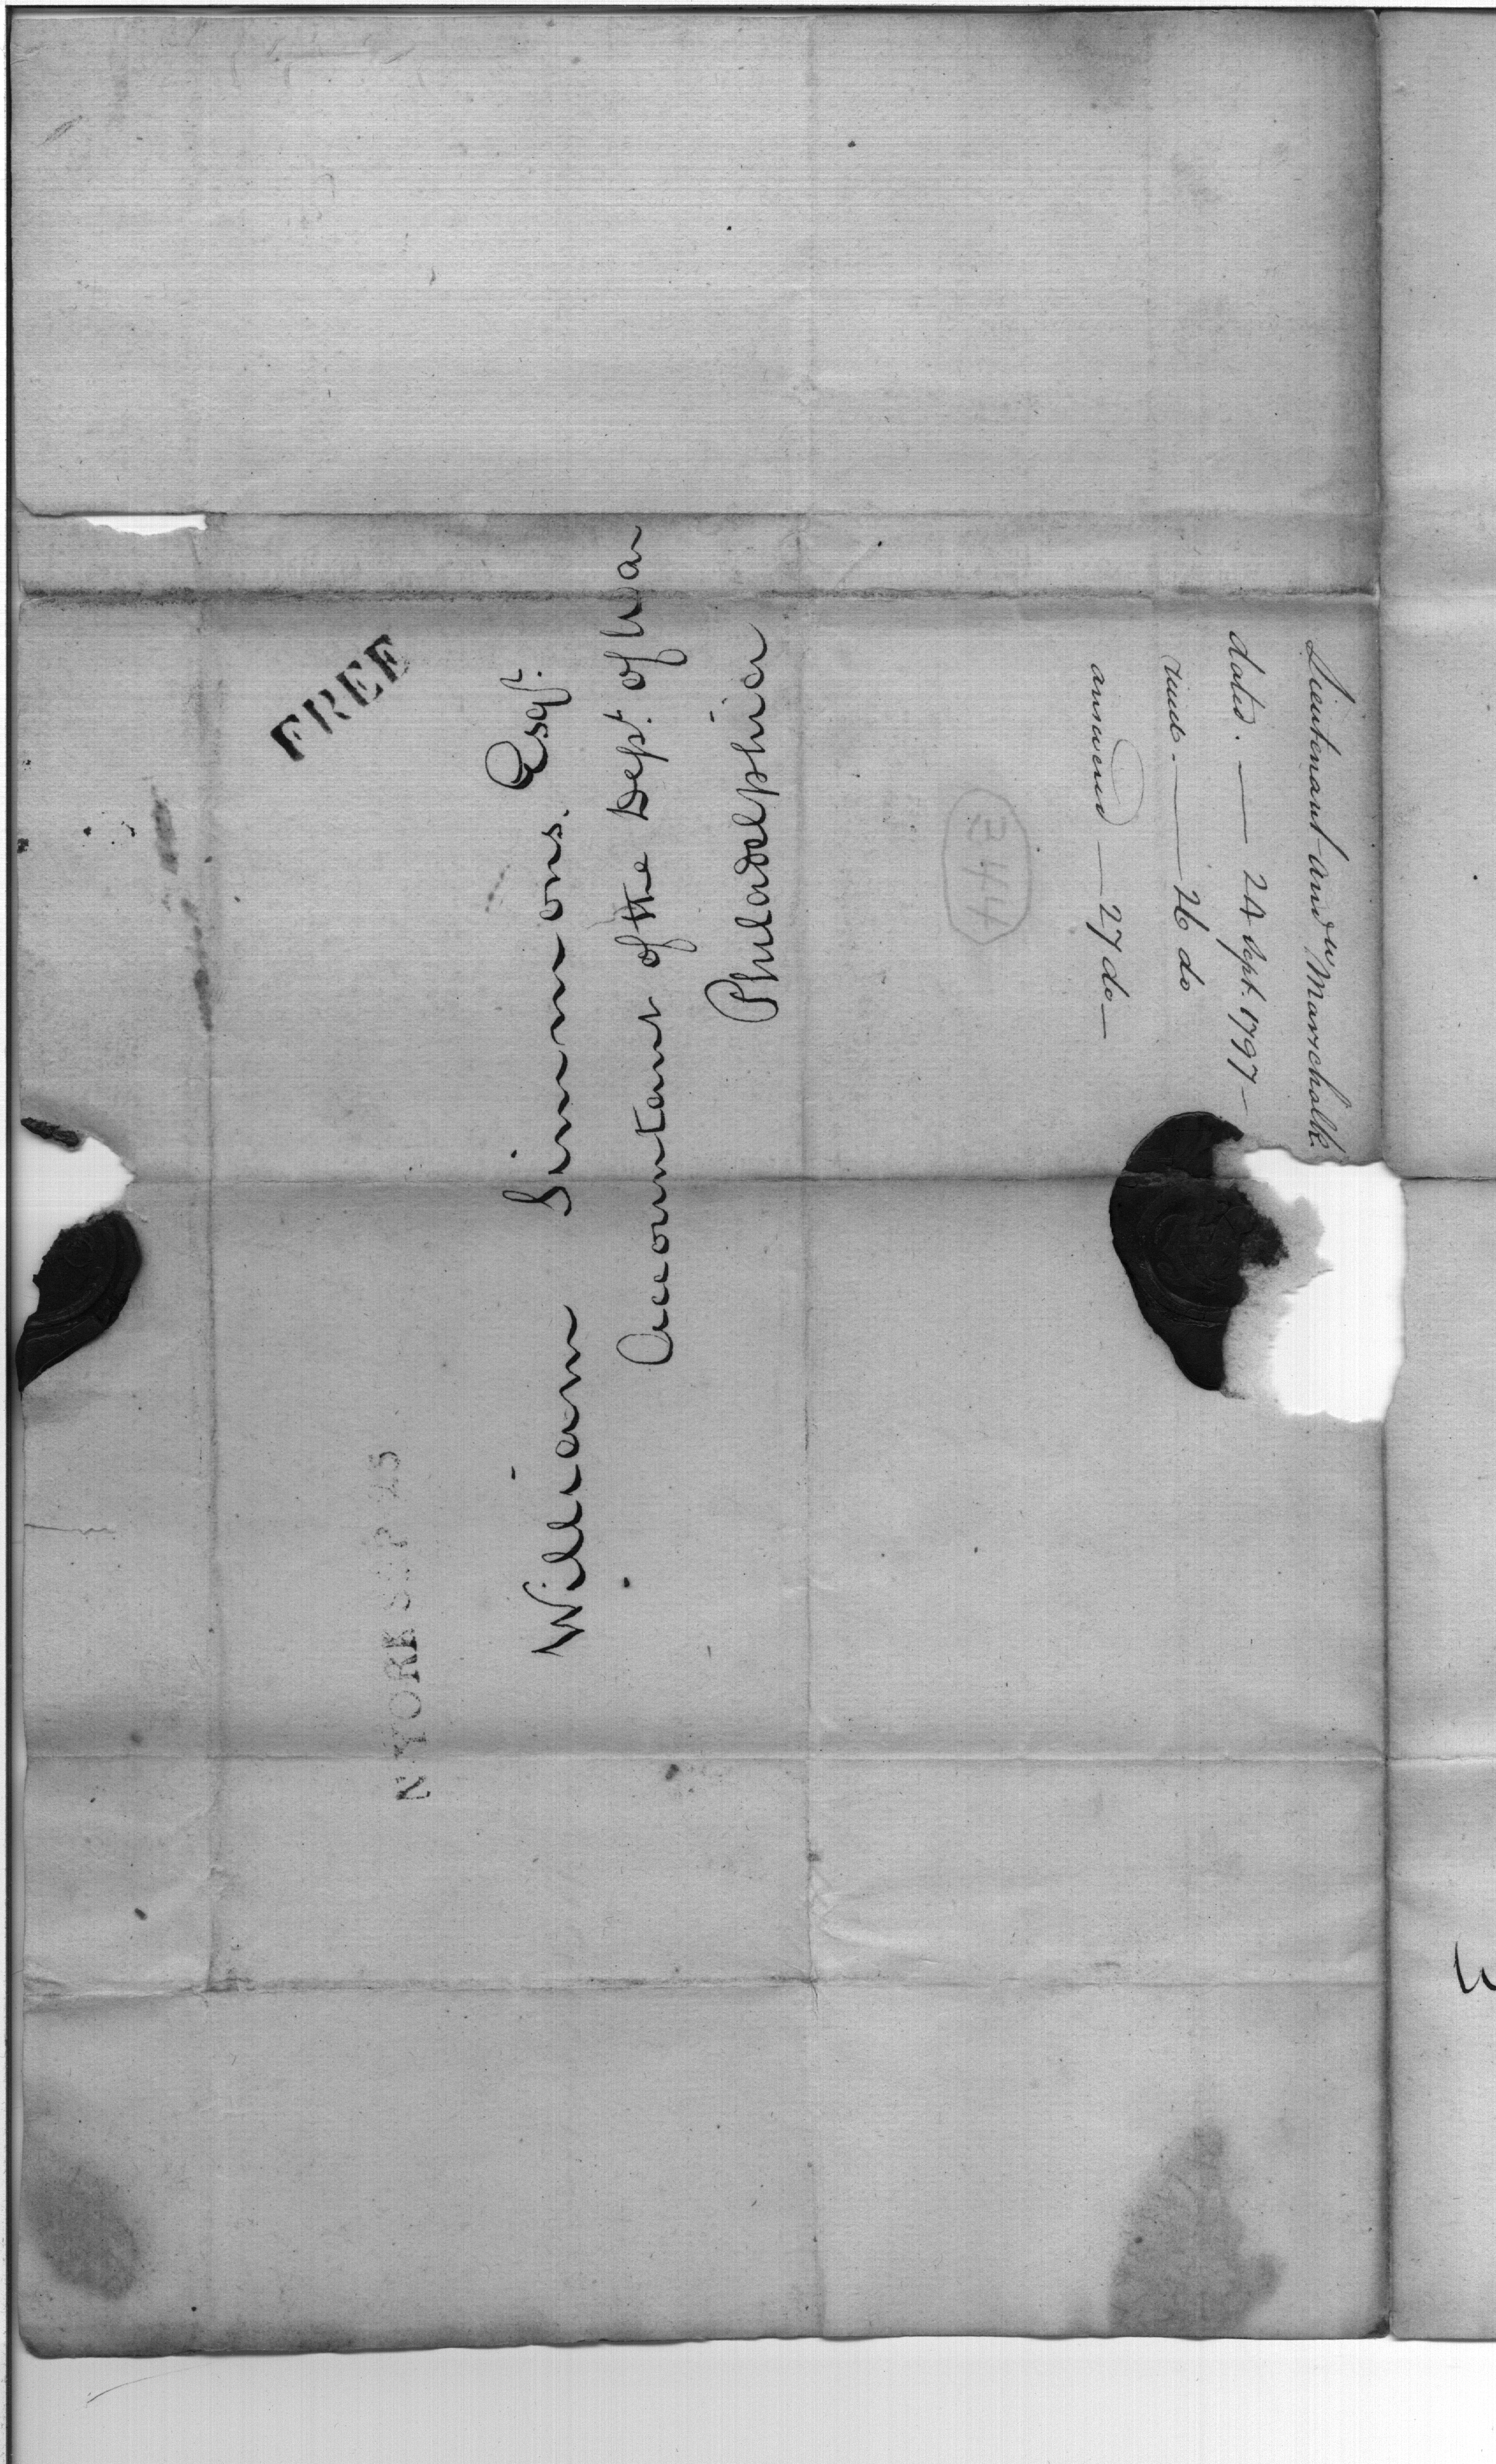 FREE
N·YORK SEP 25
William Simmons. Esqr.
Accountant of the Dept. of War
Philadelphia
Lieutenant andw Marschalk
dated. — 24 Sept. 1797 —
recd. — 26 do
answered — 27 do —